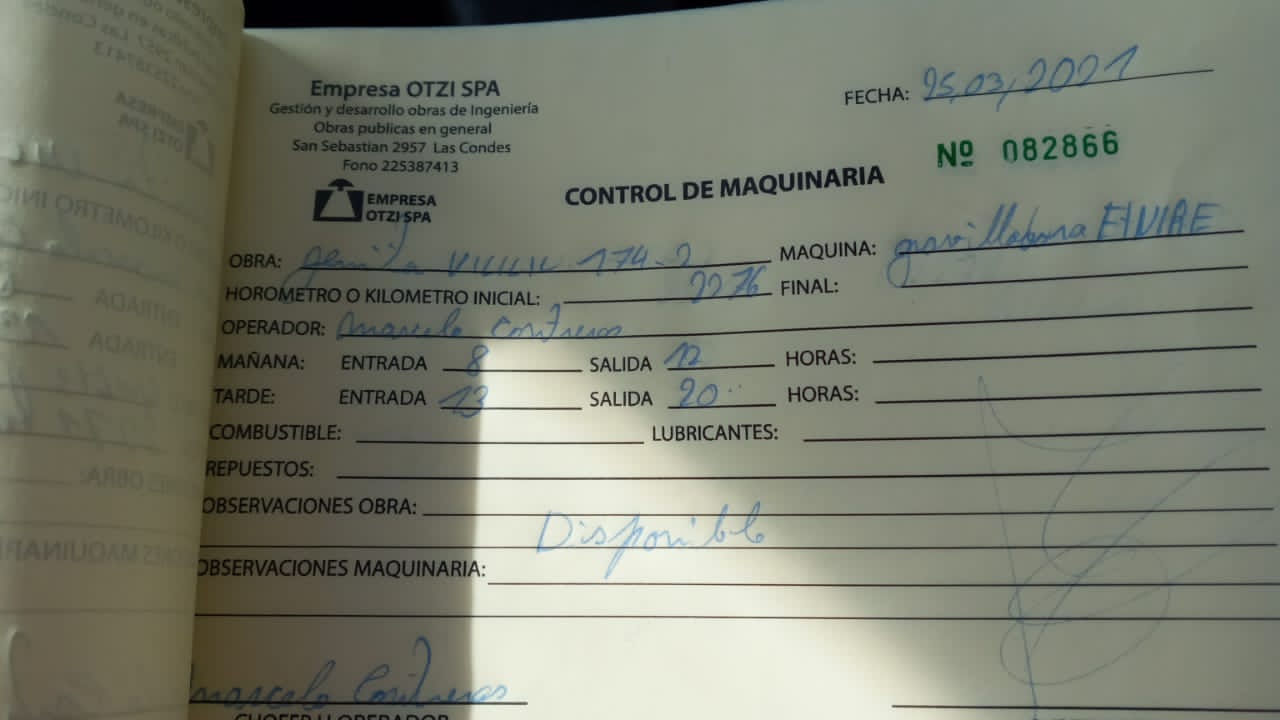 Empresa OTZI SPA
Gestión y desarrollo obras de Ingeniería
Obras publicas en general
San Sebastian 2957 Las Condes
Fono 225387413
EMPRESA
OTZI SPA
FECHA: 25,03,2021
Nº 082866
CONTROL DE MAQUINARIA
OBRA: 174-2 MAQUINA:
HOROMETRO O KILOMETRO INICIAL: 2276 FINAL:
OPERADOR: Marcelo Contreras
MAÑANA: ENTRADA 8 SALIDA 12 HORAS:
TARDE: ENTRADA 13 SALIDA 20 HORAS:
COMBUSTIBLE: LUBRICANTES:
REPUESTOS:
OBSERVACIONES OBRA:
Disponible
OBSERVACIONES MAQUINARIA:
Marcelo Contreras
CHOFER U OPERADOR